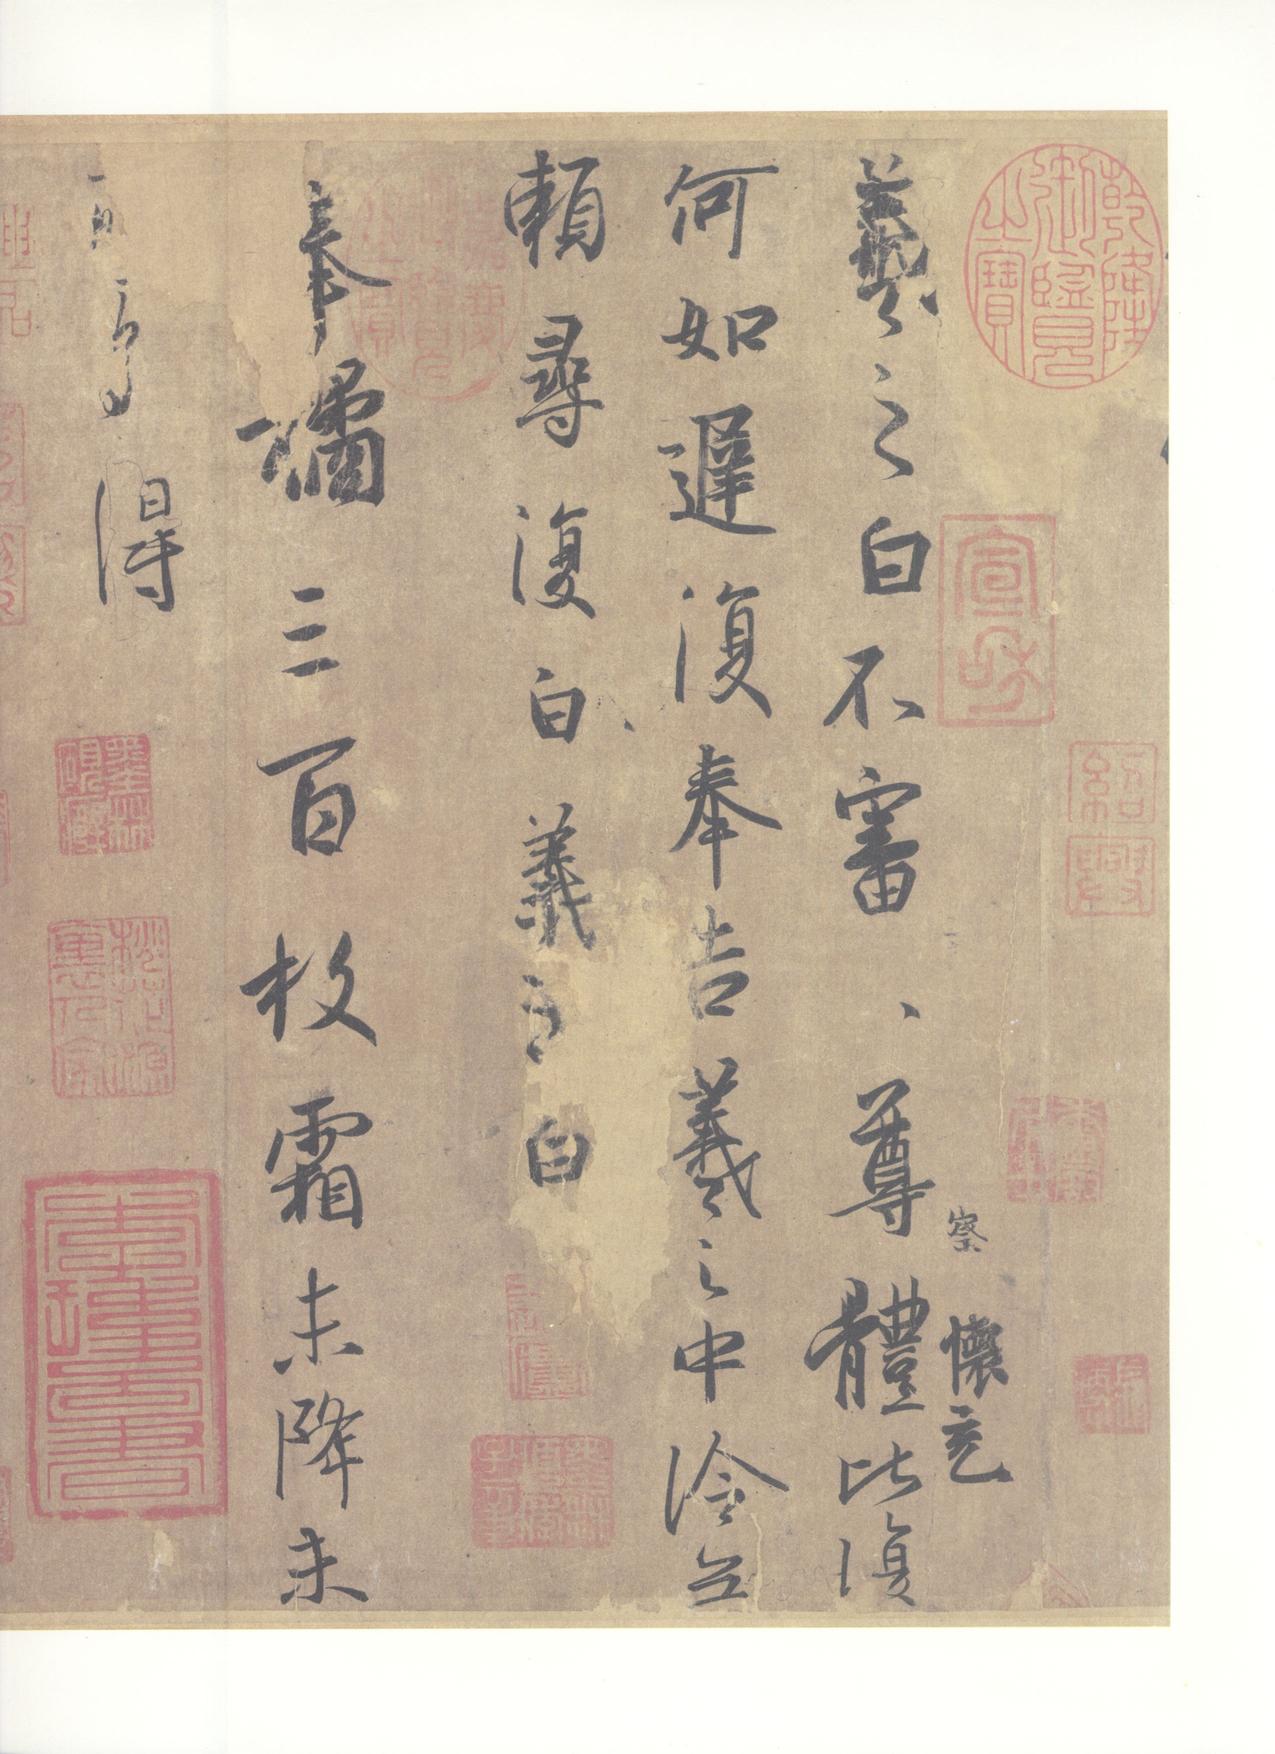 乾隆御覽之寶
宣和
紹興
察 懷充
羲之白不審尊體比復
何如遲復奉告羲之中冷無
賴尋復白羲之白
嘉慶御覽之寶
奉橘三百枚霜未降未
可多得